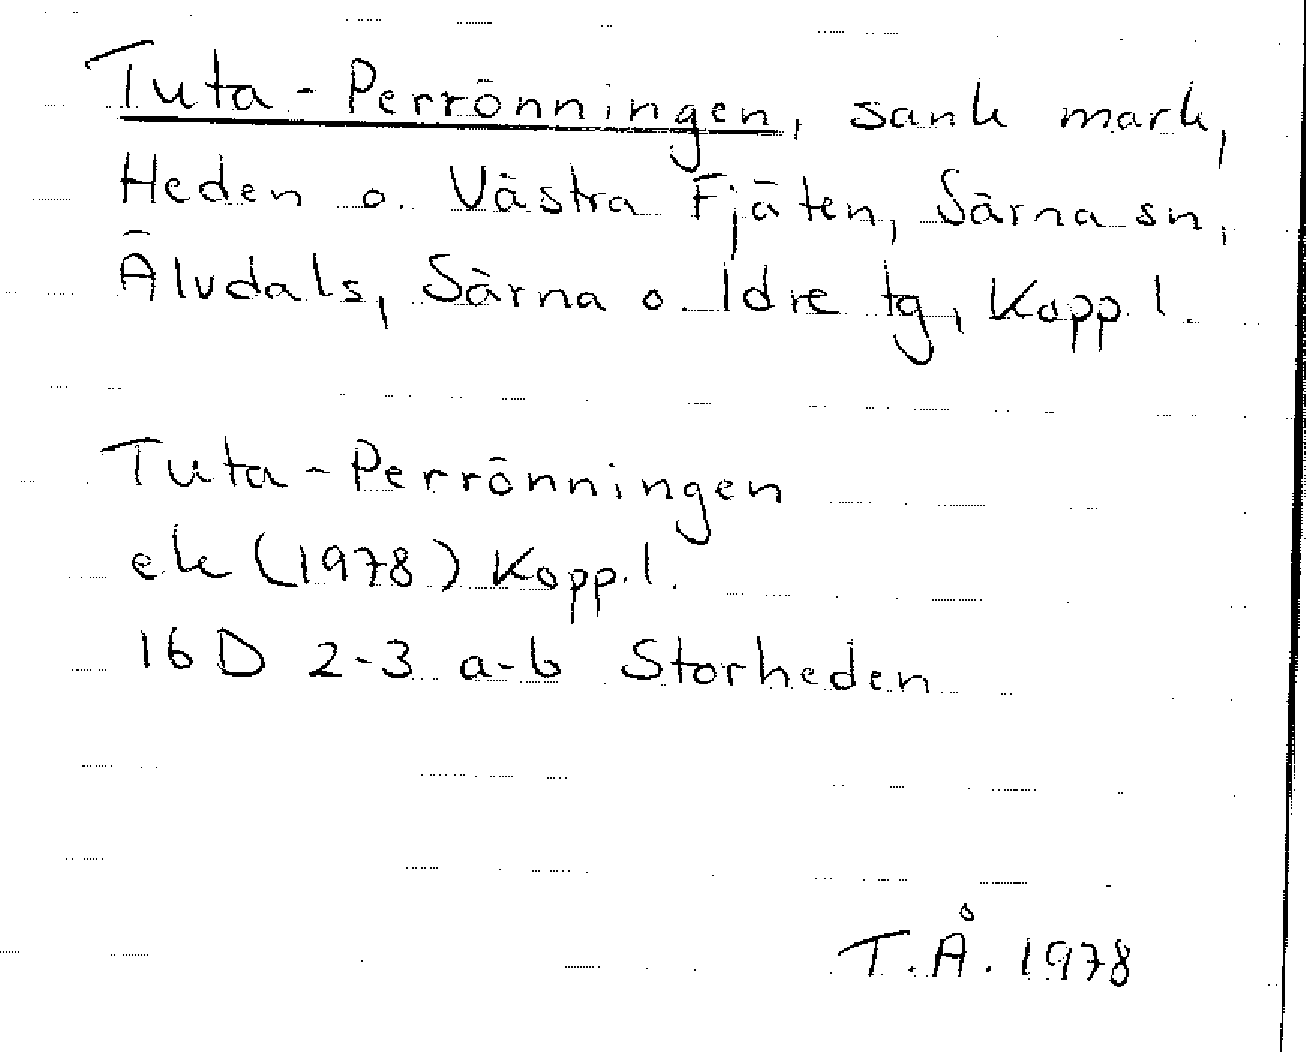 Tuta-Perrönningen, sank mark,
Heden o. Västra Fjäten, Särna sn,
Älvdals, Särna o Idre tg, Kopp. l.
Tuta-Perrönningen
ek (1978) Kopp. l.
16 D 2-3 a-b Storheden
T.Å. 1978